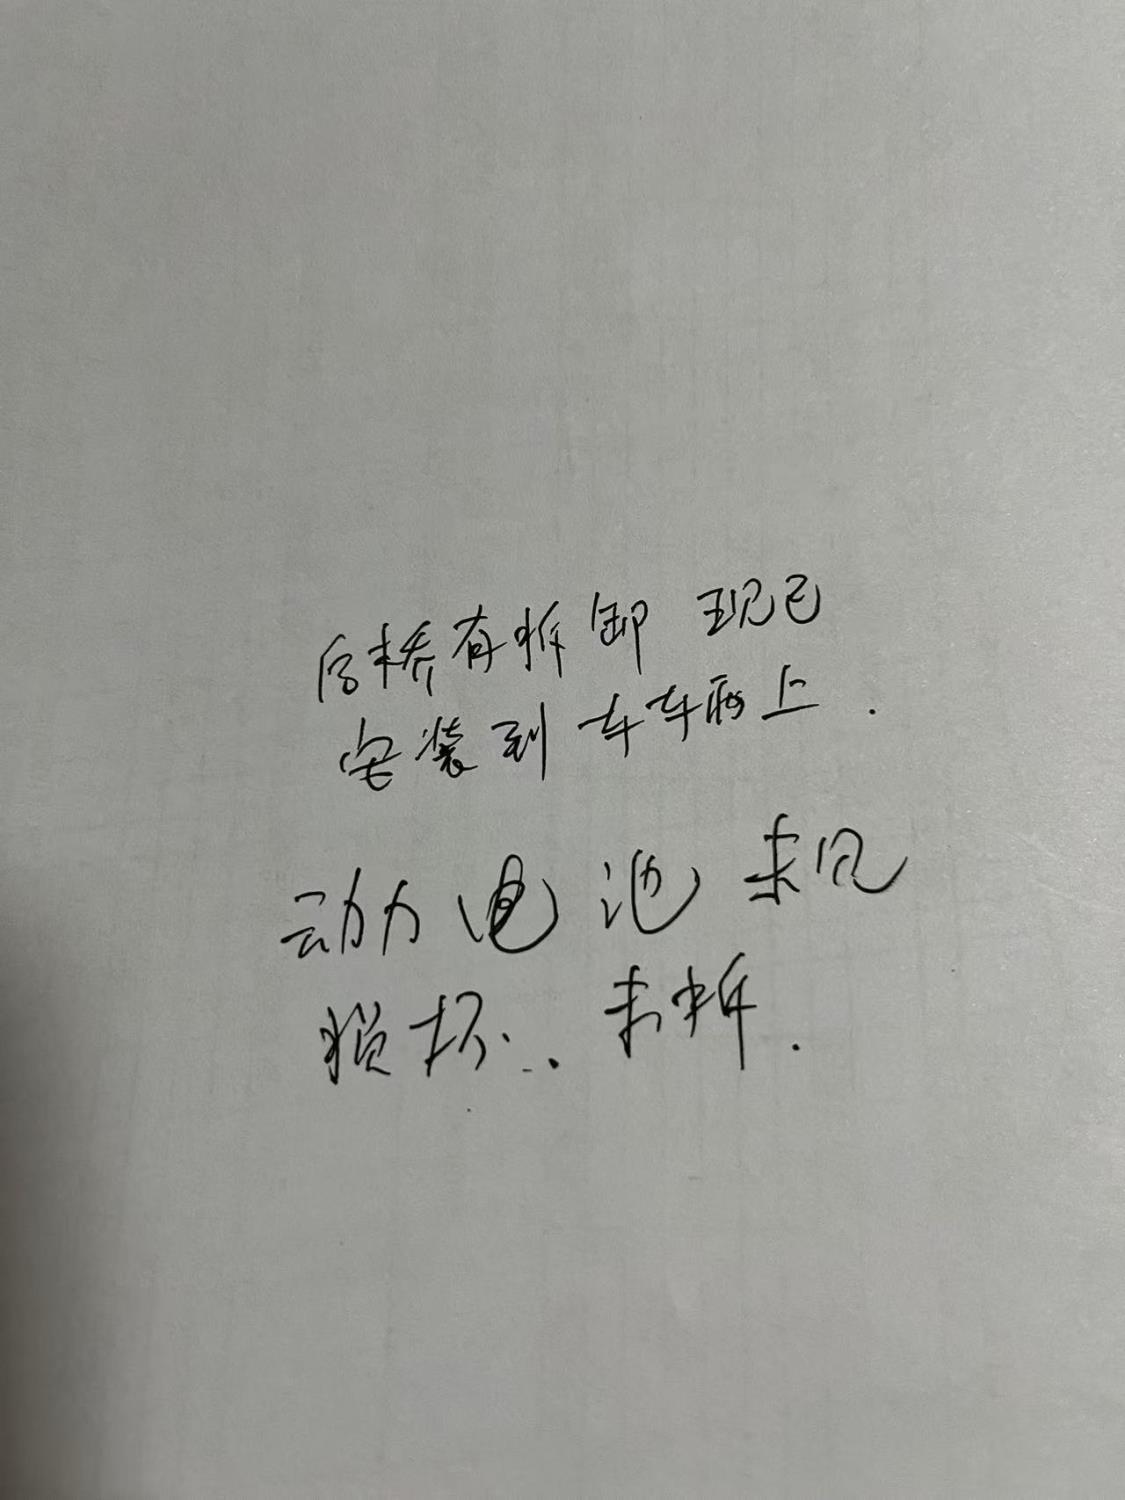 后桥有拆卸 现已
安装到车车辆上.
动力电池未见
损坏.. 未拆.